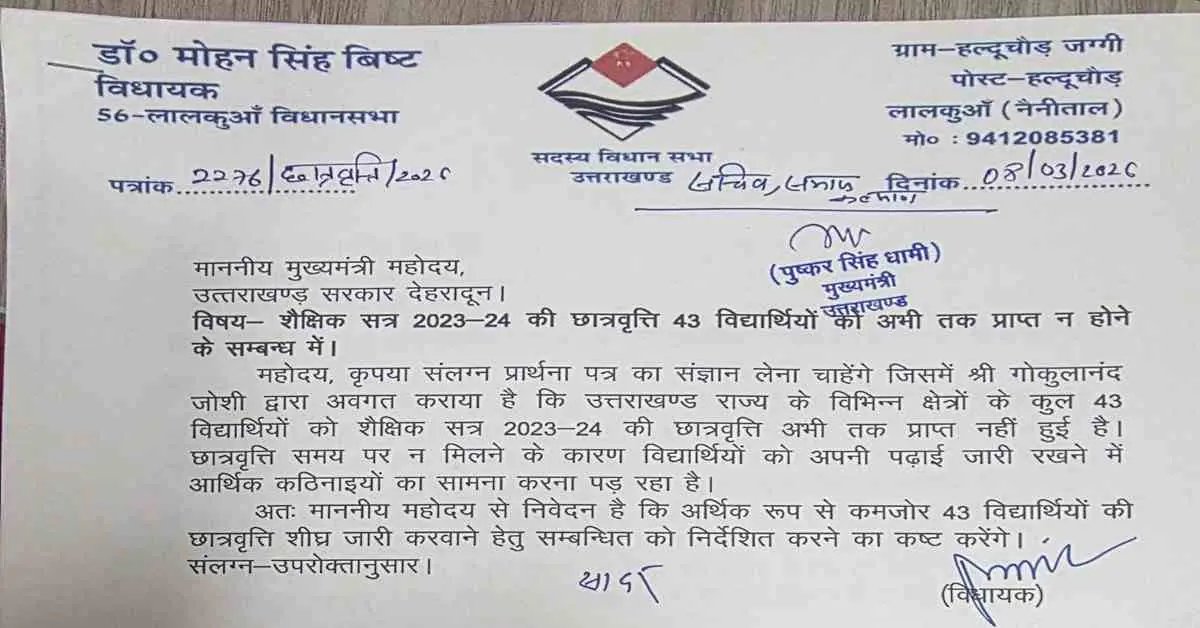 डॉ० मोहन सिंह बिष्ट
विधायक
56-लालकुआँ विधानसभा
पत्रांक 2276/छात्रवृत्ति/2026
सदस्य विधान सभा
उत्तराखण्ड
ग्राम-हल्दूचौड़ जग्गी
पोस्ट-हल्दूचौड़
लालकुआँ (नैनीताल)
मो० : 9412085381
दिनांक 08/03/2026
सचिव, समाज
कल्याण
(पुष्कर सिंह धामी)
मुख्यमंत्री
उत्तराखण्ड
माननीय मुख्यमंत्री महोदय,
उत्तराखण्ड सरकार देहरादून।
विषय– शैक्षिक सत्र 2023–24 की छात्रवृत्ति 43 विद्यार्थियों को अभी तक प्राप्त न होने
के सम्बन्ध में।
महोदय, कृपया संलग्न प्रार्थना पत्र का संज्ञान लेना चाहेंगे जिसमें श्री गोकुलानंद
जोशी द्वारा अवगत कराया है कि उत्तराखण्ड राज्य के विभिन्न क्षेत्रों के कुल 43
विद्यार्थियों को शैक्षिक सत्र 2023–24 की छात्रवृत्ति अभी तक प्राप्त नहीं हुई है।
छात्रवृत्ति समय पर न मिलने के कारण विद्यार्थियों को अपनी पढ़ाई जारी रखने में
आर्थिक कठिनाइयों का सामना करना पड़ रहा है।
अतः माननीय महोदय से निवेदन है कि आर्थिक रूप से कमजोर 43 विद्यार्थियों की
छात्रवृत्ति शीघ्र जारी करवाने हेतु सम्बन्धित को निर्देशित करने का कष्ट करेंगे।
संलग्न–उपरोक्तानुसार।
सादर
(विधायक)